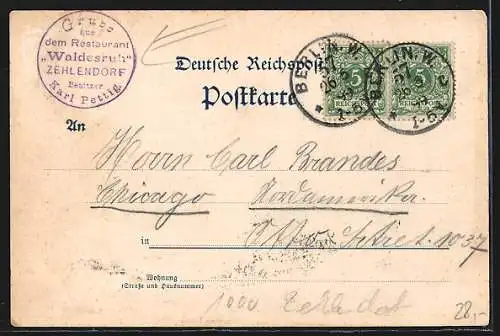 Gruss
aus
dem Restaurant
"Waldesruh"
ZEHLENDORF
Besitzer
Karl Pettig
Deutsche Reichspost
Postkarte
BERLIN. W.
BERLIN. W.
5
5
An
Herrn Carl Brandes
Chicago Nordamerika.
in 1037
Wohnung
(Straße und Hausnummer)
1000
28,-